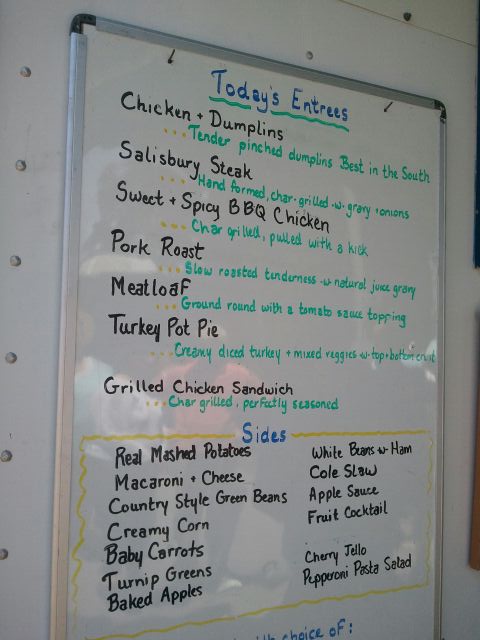 Today's Entrees
Chicken + Dumplins
... Tender pinched dumplins Best in the South
Salisbury Steak
... Hand formed, char-grilled -w- gravy + onions
Sweet + Spicy BBQ Chicken
... Char grilled, pulled with a kick
Pork Roast
... Slow roasted tenderness -w- natural juice gravy
Meatloaf
... Ground round with a tomato sauce topping
Turkey Pot Pie
... Creamy diced turkey + mixed veggies -w- top + bottom crust
Grilled Chicken Sandwich
... Char grilled, perfectly seasoned
Sides
Real Mashed Potatoes
Macaroni + Cheese
Country Style Green Beans
Creamy Corn
Baby Carrots
Turnip Greens
Baked Apples
White Beans w- Ham
Cole Slaw
Apple Sauce
Fruit Cocktail
Cherry Jello
Pepperoni Pasta Salad
choice of: